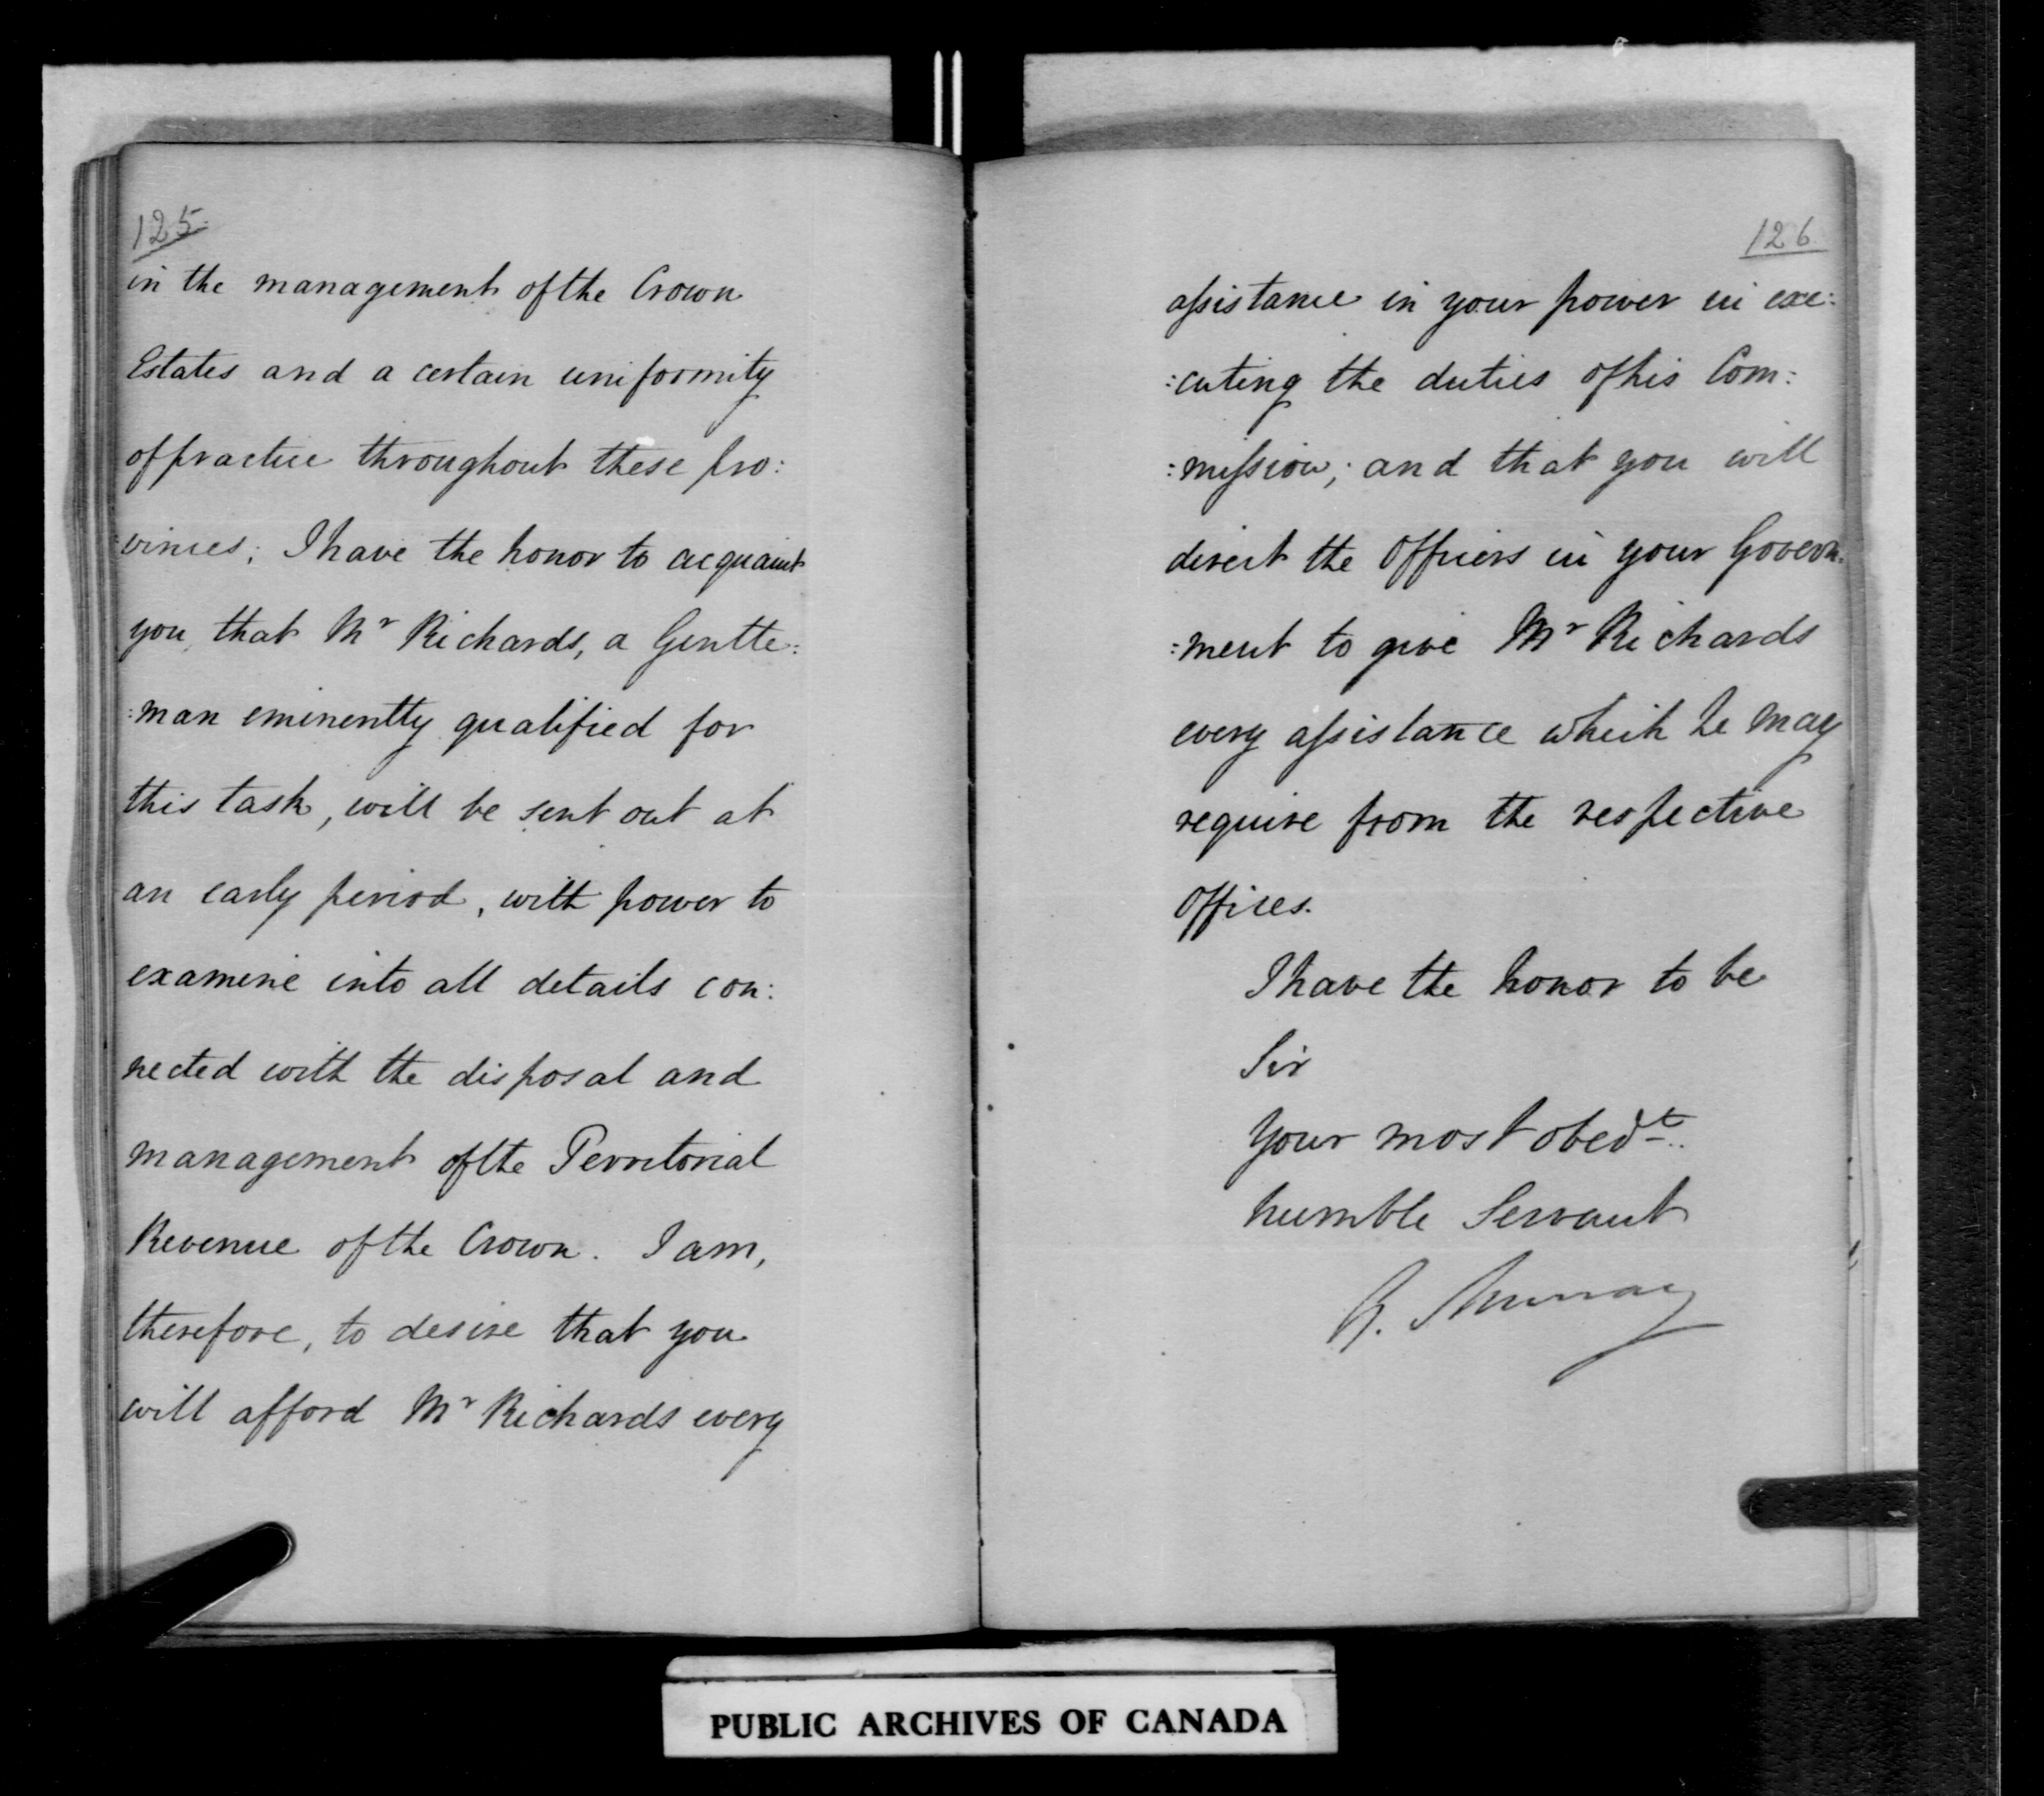 125
in the management of the Crown
Estates and a certain uniformity
of practice throughout these pro:
:vinces; I have the honor to acquaint
you, that Mr Richards, a Gentle:
:man eminently qualified for
this task, will be sent out at
an early period, with power to
examine into all details con:
nected with the disposal and
management of the Territorial
Revenue of the Crown. I am,
therefore, to desire that you
will afford Mr Richards every
126
assistance in your power in exe:
:cuting the duties of his Com:
:mission; and that you will
direct the Officers in your Govern:
:ment to give Mr Richards
every assistance which he may
require from the respective
Offices.
I have the honor to be
Sir
Your most obedt
humble Servant
G. Murray
PUBLIC ARCHIVES OF CANADA